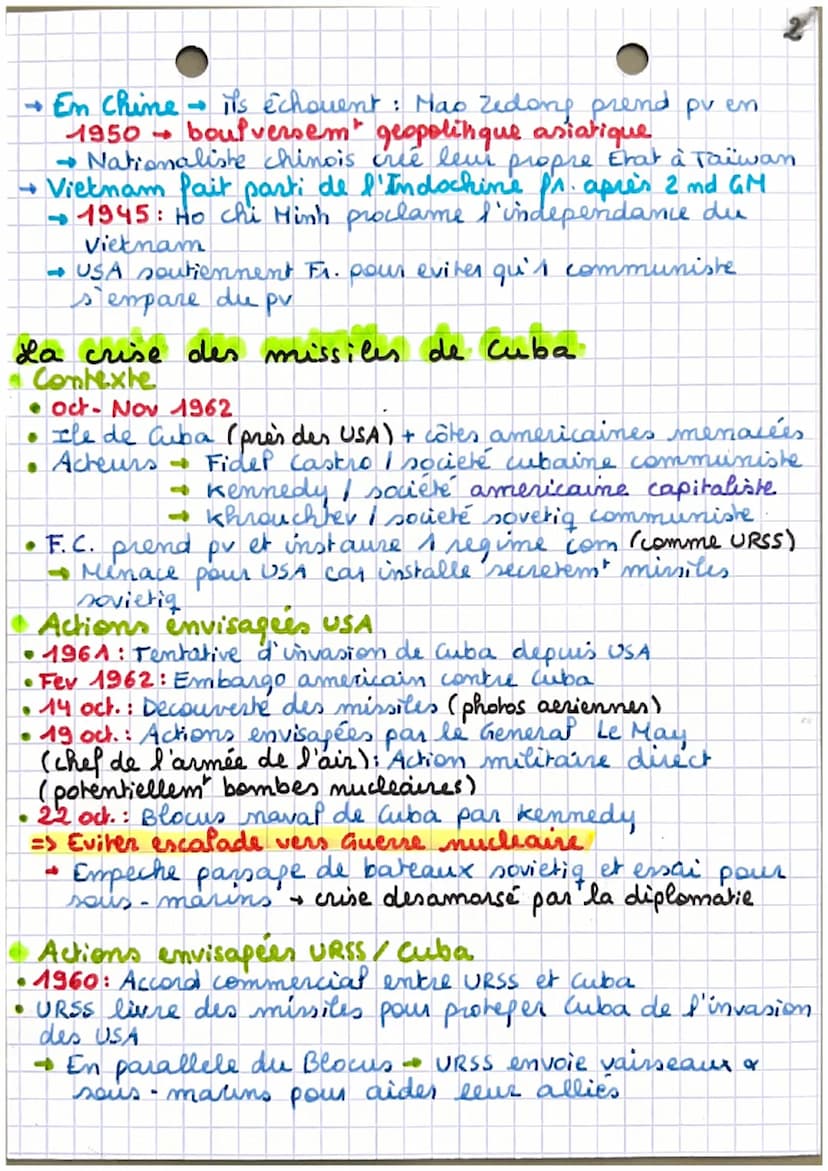 2
→ En Chine → ils échouent : Mao Zedong prend pv en
1950 → bouleversemt geopolitique asiatique
→ Nationaliste chinois créé leur propre Etat à Taïwan
→ Vietnam fait parti de l'Indochine fr. après 2 nd GM
→ 1945 : Ho chi Minh proclame l'independance du
Vietnam
→ USA soutiennent Fr. pour eviter qu'1 communiste
s'empare du pv
La crise des missiles de Cuba
• Contexte
• Oct - Nov 1962
• Ile de Cuba (près des USA) + côtes americaines menacées
• Acteurs → Fidel Castro / société cubaine communiste
→ Kennedy / société americaine capitaliste
→ Khrouchtev / societé sovetiq communiste
• F.C. prend pv et instaure 1 regime com (comme URSS)
→ Menace pour USA car installe secretemt missiles
sovietiq
• Actions envisageés USA
• 1961 : Tentative d'invasion de Cuba depuis USA
• Fev 1962 : Embargo americain contre Cuba
• 14 oct. : Decouverte des missiles (photos aeriennes)
• 19 oct. : Actions envisagées par le General Le May
(chef de l'armée de l'air) : Action militaire direct
(potentiellemt bombes nucleaires)
• 22 oct. : Blocus naval de Cuba par Kennedy
=> Eviter escalade vers Guerre nucleaire
→ Empeche passage de bateaux sovietiq et essai pour
sous - marins → crise desamorsé par la diplomatie
• Actions envisagées URSS / Cuba
• 1960 : Accord commercial entre URSS et Cuba
• URSS livre des missiles pour proteger Cuba de l'invasion
des USA
→ En parallele du Blocus → URSS envoie vaisseaux &
sous - marins pour aider leur alliés